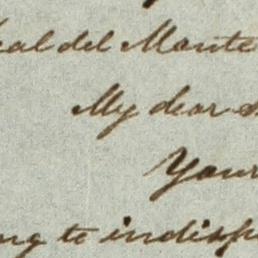 eal del Monte
My dear
Your
ng to indisp